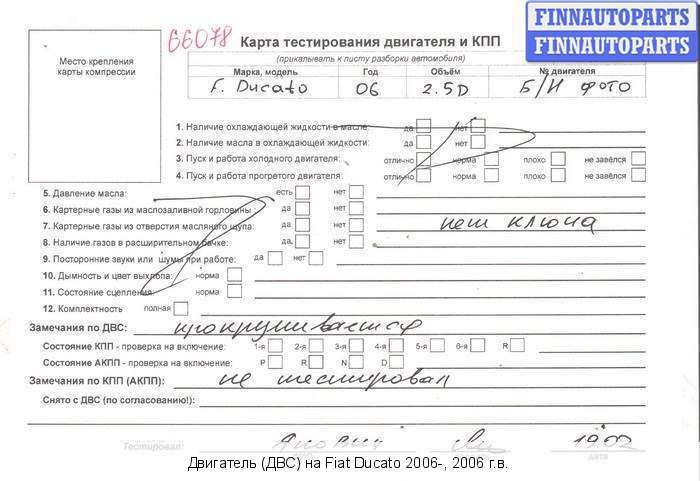 FINNAUTOPARTS
FINNAUTOPARTS
66078
Карта тестирования двигателя и КПП
(прикалывать к листу разборки автомобиля)
Место крепления
карты компрессии
Марка, модель Год Объём № двигателя
F. Ducato 06 2.5D Б/Н фото
1. Наличие охлаждающей жидкости в масле: да нет
2. Наличие масла в охлаждающей жидкости: да нет
3. Пуск и работа холодного двигателя: отлично норма плохо не завёлся
4. Пуск и работа прогретого двигателя: отлично норма плохо не завёлся
5. Давление масла: есть нет
6. Картерные газы из маслозаливной горловины да нет
7. Картерные газы из отверстия масляного щупа: да нет
нет ключа
8. Наличие газов в расширительном бачке: да, нет
9. Посторонние звуки или шумы при работе: да нет
10. Дымность и цвет выхлопа: норма
11. Состояние сцепления: норма
12. Комплектность полная
Замечания по ДВС: прокручивается
Состояние КПП - проверка на включение: 1-я 2-я 3-я 4-я 5-я 6-я R
Состояние АКПП - проверка на включение: P R N D
Замечания по КПП (АКПП): не тестирован
Снято с ДВС (по согласованию!):
Тестировал: 19.02
дата
Двигатель (ДВС) на Fiat Ducato 2006-, 2006 г.в.